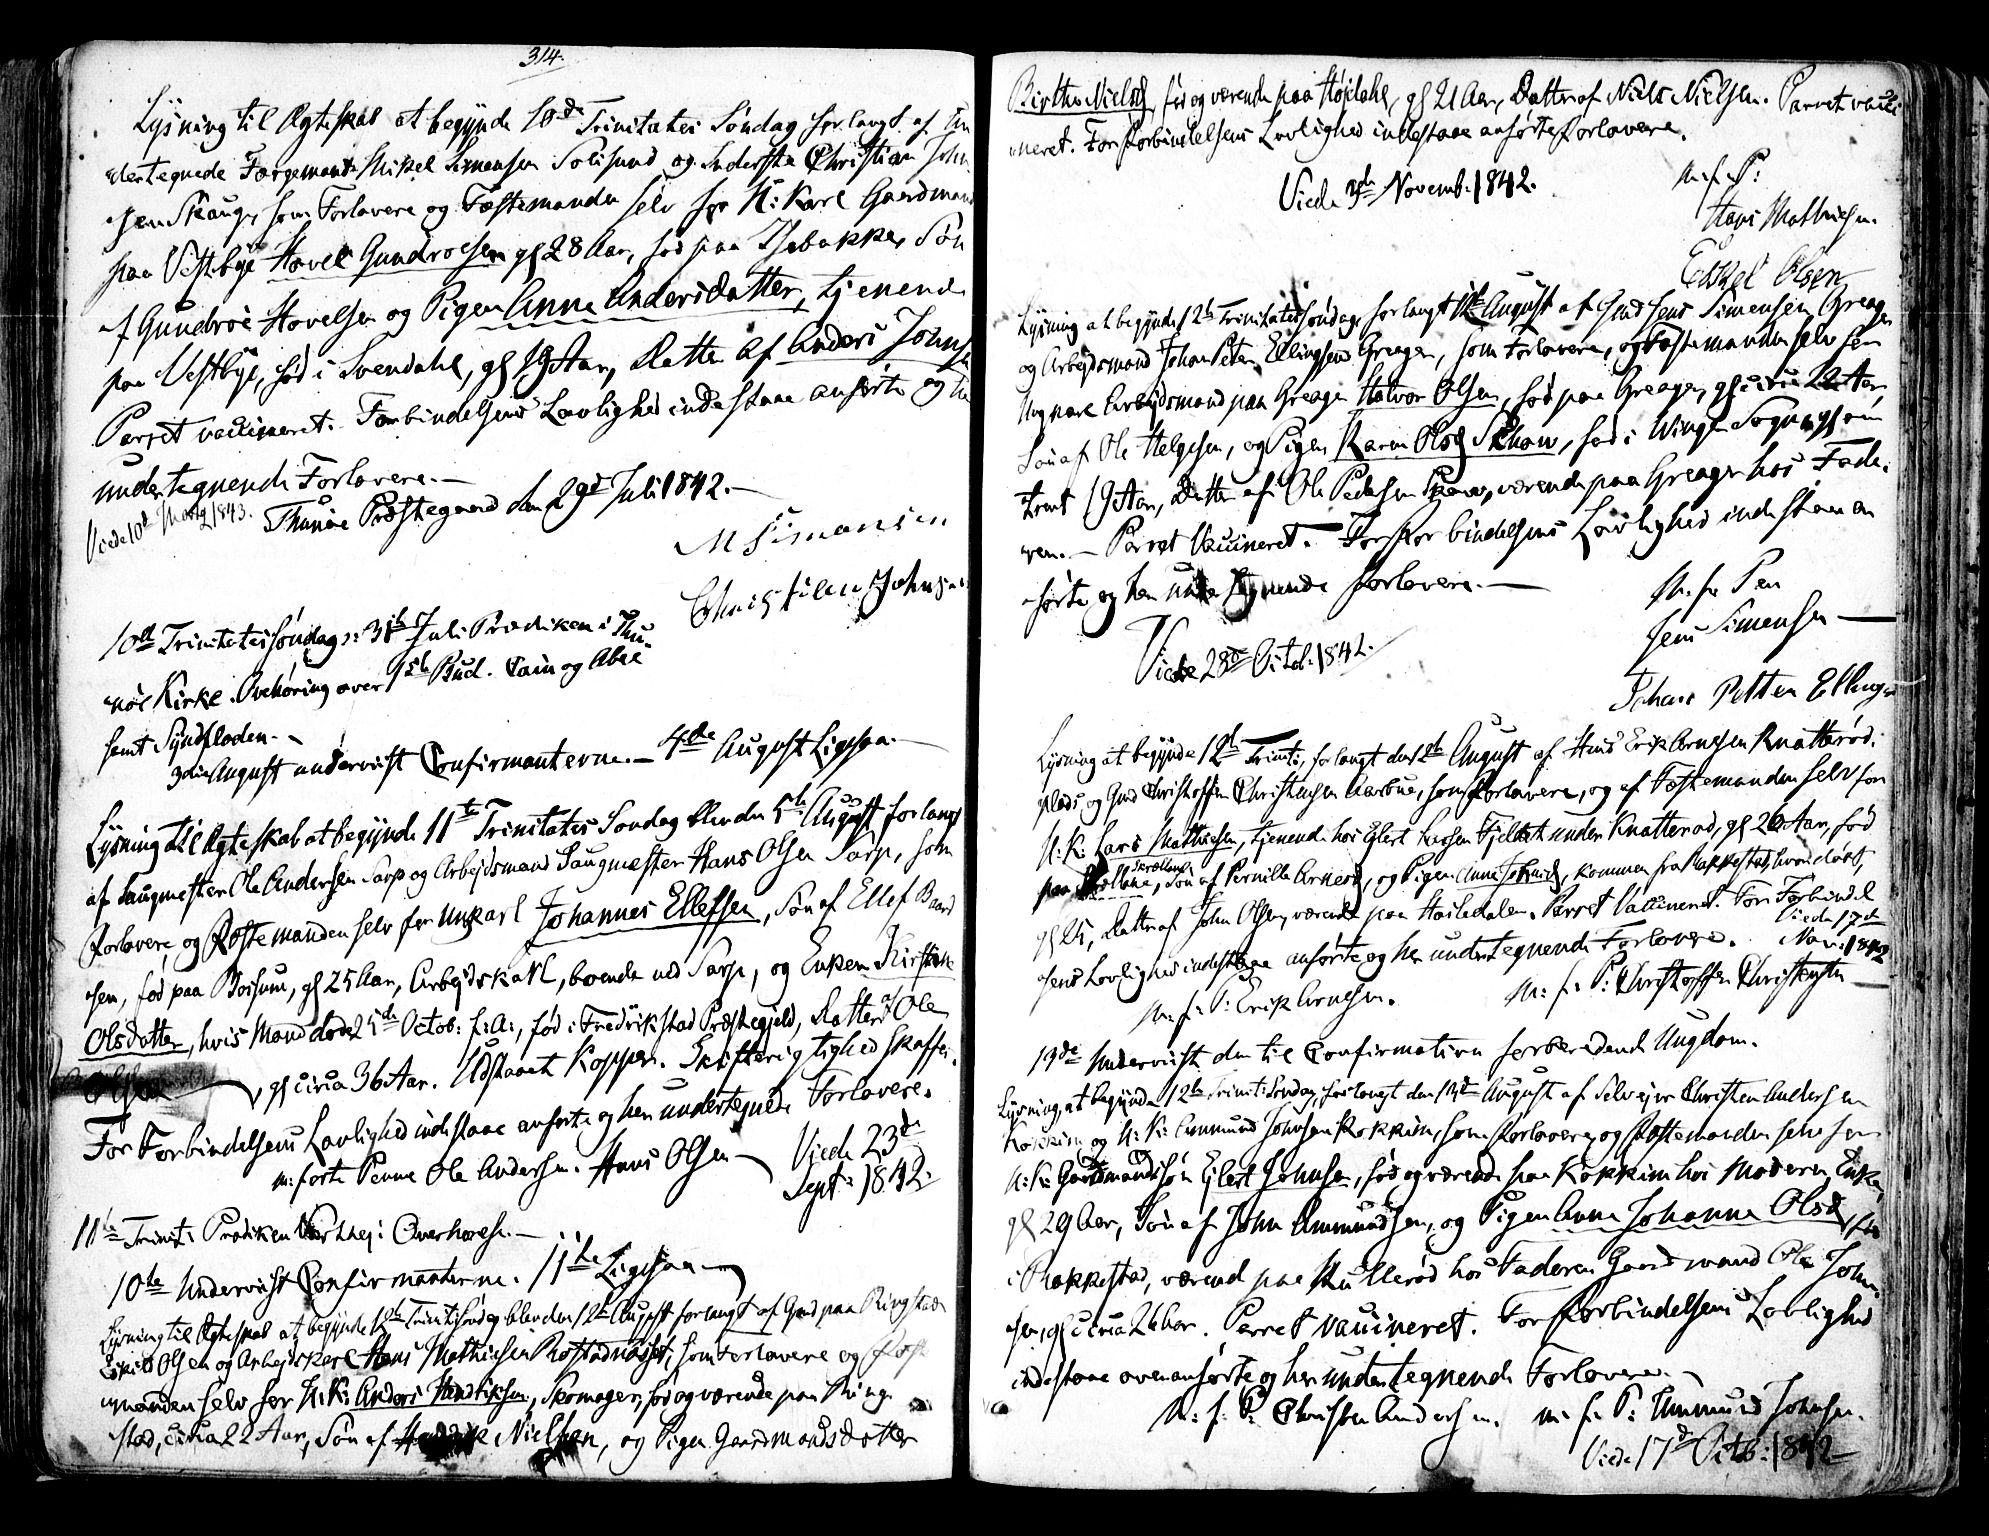 314.
Lysning til Ægteskab at begynde 10de Trinitatis Søndag forlangt af un
dertegnede Færgemand Mikel Simensen Solisund og Inderste Christian John
sen Skaug, som Forlovere og Fæstemanden selv for U: Karl Gaardmand
paa Vestbye Hovel Gundrosen gl 28 Aar, fød paa Isebakke, Søn
af Gundroe Hovelsen og Pigen Anne Andersdatter, tjenende
paa Vestbye, fød i Svendahl, gl 19 Aar, Datter af Anders Johns
Parret vaccineret. Forbindelsens Lovlighed indestaae anførte og
undertegnende Forlovere.—
Viede 10de Marty 1843. Thunøe Præstegaard den 29de Juli 1842.—
M Simonsen
Christian Johnsen
10de Trinitatis søndag 31te Juli Prædiken i Thu
nøe Kirke. Overhøring over 1ste Bud. Cain og Abel
samt Syndfloden.—
3die August underviist Confirmanterne.— 4de August Ligesaa.—
Lysning til Ægteskab at begynde 11te Trinitatis Søndag blev den 5te August forlangt
af Saugmester Ole Andersen Sarp og Arbejdsmand Saugmester Hans Olsen Sarp, som
Forlovere, og Fæstemanden selv for Ungkarl Johannes Ellefsen, Søn af Ellef Baard
sen, fød paa Borsum, gl 25 Aar, Arbejdskarl, boende ved Sarp, og Enken Kirstine
Olsdatter, hvis Mand døde 25de Octob: f: A:, fød i Fredrikstad Præstegjeld, Datter af Ole
Olsen, gl circa 36 Aar. Udstaaet Kopper. Skifterigtighed skaffes.
For Forbindelsens Lovlighed indestaae anførte og her undertegnede Forlovere.
m: førte Penne Ole Andersen. Hans Olsen— Viede 23de
Septr: 1842.
11te Trinit: Prædiken Overhørese.—
10de Underviist Confirmanterne. 11te Ligesaa—
Lysning til Ægteskab at begynde 12te Trinit: Søndag blev den 12te August forlangt af Gmd paa Ringstad
Olsen og Arbejdskarl Hans Mathiesen Rostadnæsset, som Forlovere og Fæste
manden selv for U: K: Anders Hendriksen, Skomager, fød og værende paa Ring
stad, circa 22 Aar, Søn af Nielsen, og Pigen Gaardmandsdatter
Birthe Nielsd, fød og værende paa Højdahl, gl 21 Aar, Datter af Niels Nielsen. Parret vacci
neret. For Forbindelsens Lovlighed indestaae anførte Forlovere.
Viede 3de Novemb. 1842.
m. f. P:
Hans Mathiesen.
Eskel Olsen
Lysning at begynde 12te Trinitatis søndag, forlangt August af Gmd Jens Simensen Greager
og Arbejdsmand Johan Peter Ellingsen Greager, som Forlovere, og Fæstemanden selv for
Ungkarl Arbejdsmand paa Greager Halvor Olsen, fød paa Greager, gl circa 22 Aar
Søn af Ole Helgesen, og Pigen Karen Olsd Skaw, fød i Sogn, gl om
trent 19 Aar, Datter af Ole Pedersen Skaw, værende paa Greager hos Fade
ren.— Parret Vaccineret. For Forbindelsens Lovlighed indestaae an
førte og her undertegnende Forlovere.—
m. f. Pen
Jens Simensen—
Viede 28de Octob. 1842.
Johans Petter Ellings
Lysning at begynde 12te Trinit:, forlangt den 12te August af Huus Erik Arnesen Knatterød:
plads, og Gmd Christoffer Christensen Aarbue, som Forlovere, og af Fæstemanden selv for
U: K: Lars Mathiesen, tjenende hos Ejlert Larsen Fjeldet under Knatterød, gl 26 Aar, fød
paa , Søn af Pernille Arnesd, og Pigen Anne Johnsd, kommen fra Rakkestad, hvor døbt,
gl 25, Datter af John Olsen, værende paa Hasledalen. Parret Vaccineret. For Forbindel
sens Lovlighed indestaae anførte og her undertegnende Forlovere. Viede 17de
Nov: 1842
m: f: P: Erik Arnesen. m: f: P: Christoffer Christensen—
13de Underviist den til Confirmation forberedende Ungdom.
Lysning, at begynde 12te Trinit: Søndag, forlangt den 13de August af Selvejer Christen Andersen
Kokkim og U: K: Ammund Johnsen Kokkim, som Forlovere, og Fæstemanden selv for
U: K: Gaardmandssøn Ejlert Johnsen, fød og værende paa Kokkim hos Moderen, Enke,
gl 29 Aar, Søn af John Ammundsen, og Pigen Anne Johanne Olsd, fød
i Rakkestad, værende paa Mullerød hos Faderen Gaardmand Ole John
sen, gl circa 26 Aar. Parret vaccineret. For Forbindelsens Lovlighed
indestaae ovenanførte og her undertegnende Forlovere.—
m: f: P: Christen Andersen. m: f: P: Ammund Johnsen.
Viede 17de Octb: 1842—